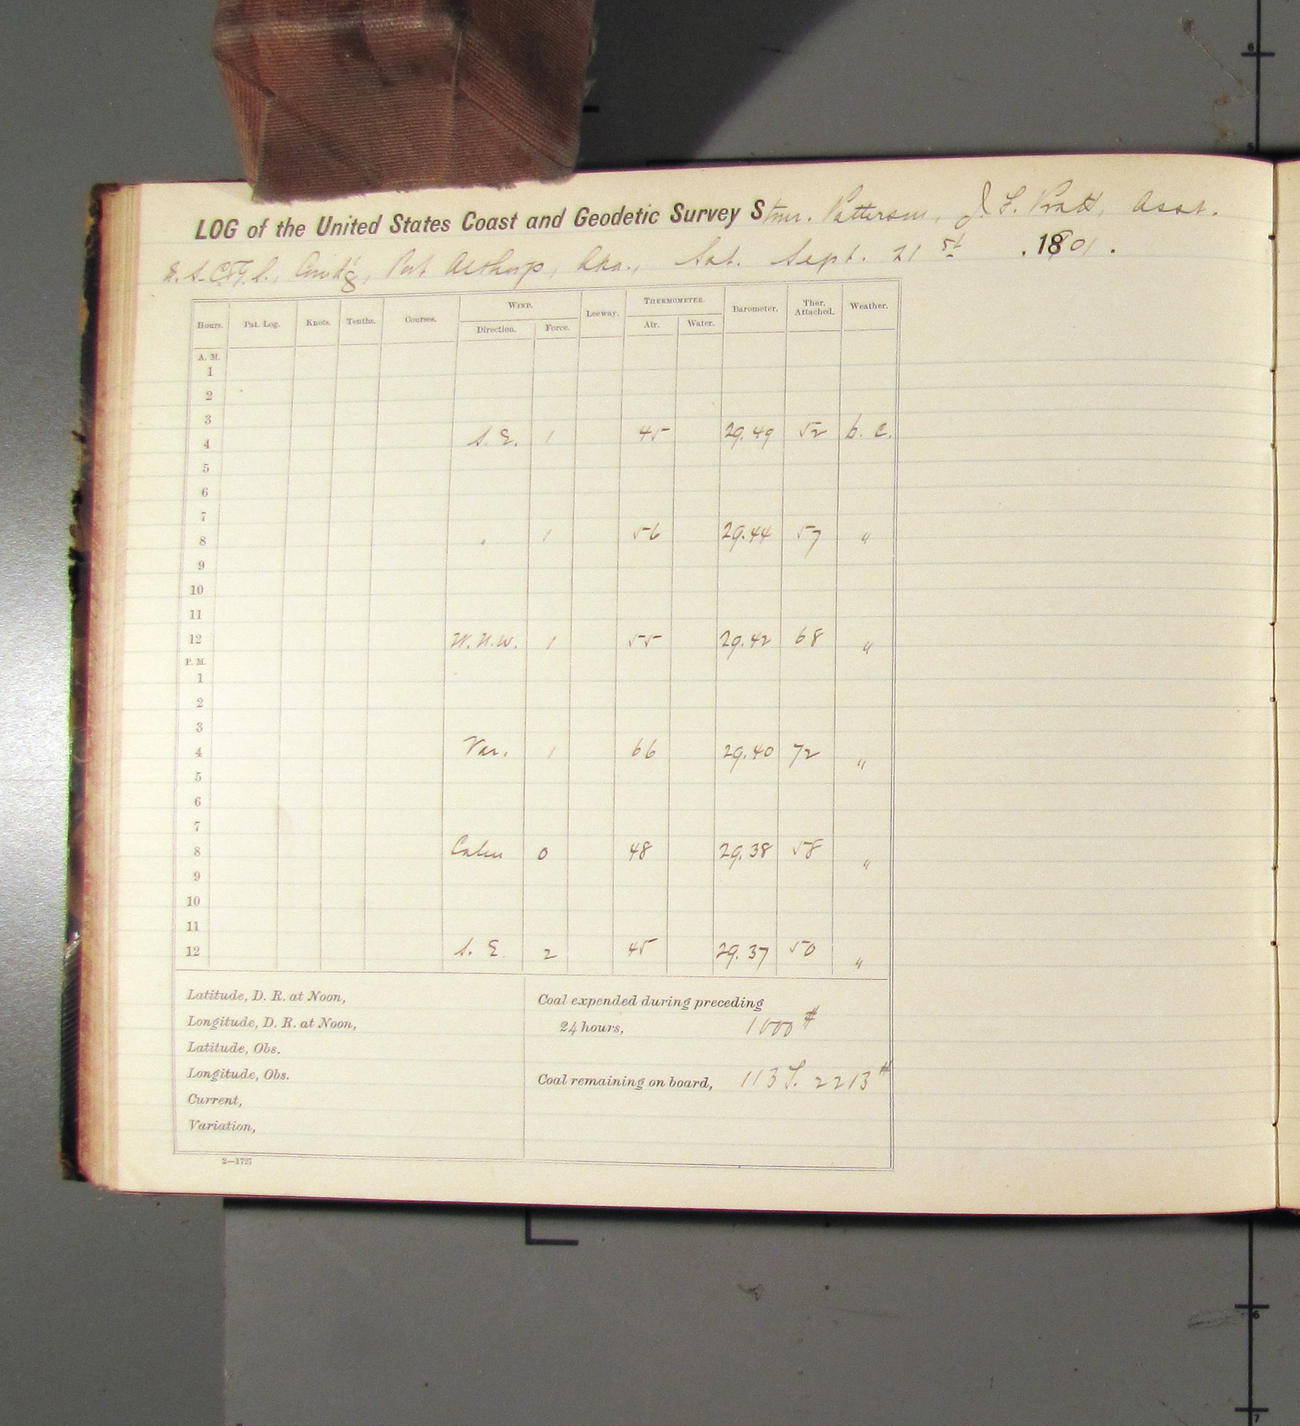 LOG of the United States Coast and Geodetic Survey Stmr. Patterson, J. F. Pratt, Asst.
U.S.C.&G.S., Comd'g, Port Althorp, Aka., Sat. Sept. 21st, 1901.
Hours. Pat. Log. Knots. Tenths. Courses. WIND. Leeway. THERMOMETER. Barometer. Ther. Attached. Weather.
Direction. Force. Air. Water.
A. M.
1
2
3
4 S. E. 1 45 29.49 52 b. c.
5
6
7
8 " 1 56 29.44 57 "
9
10
11
12 W.N.W. 1 55 29.42 68 "
P. M.
1
2
3
4 Var. 1 66 29.40 72 "
5
6
7
8 Calm 0 48 29.38 58 "
9
10
11
12 S. E. 2 45 29.37 50 "
Latitude, D. R. at Noon,
Longitude, D. R. at Noon,
Latitude, Obs.
Longitude, Obs.
Current,
Variation,
Coal expended during preceding
24 hours, 1000#
Coal remaining on board, 113 T. 2213#
2—1727
6
6
7